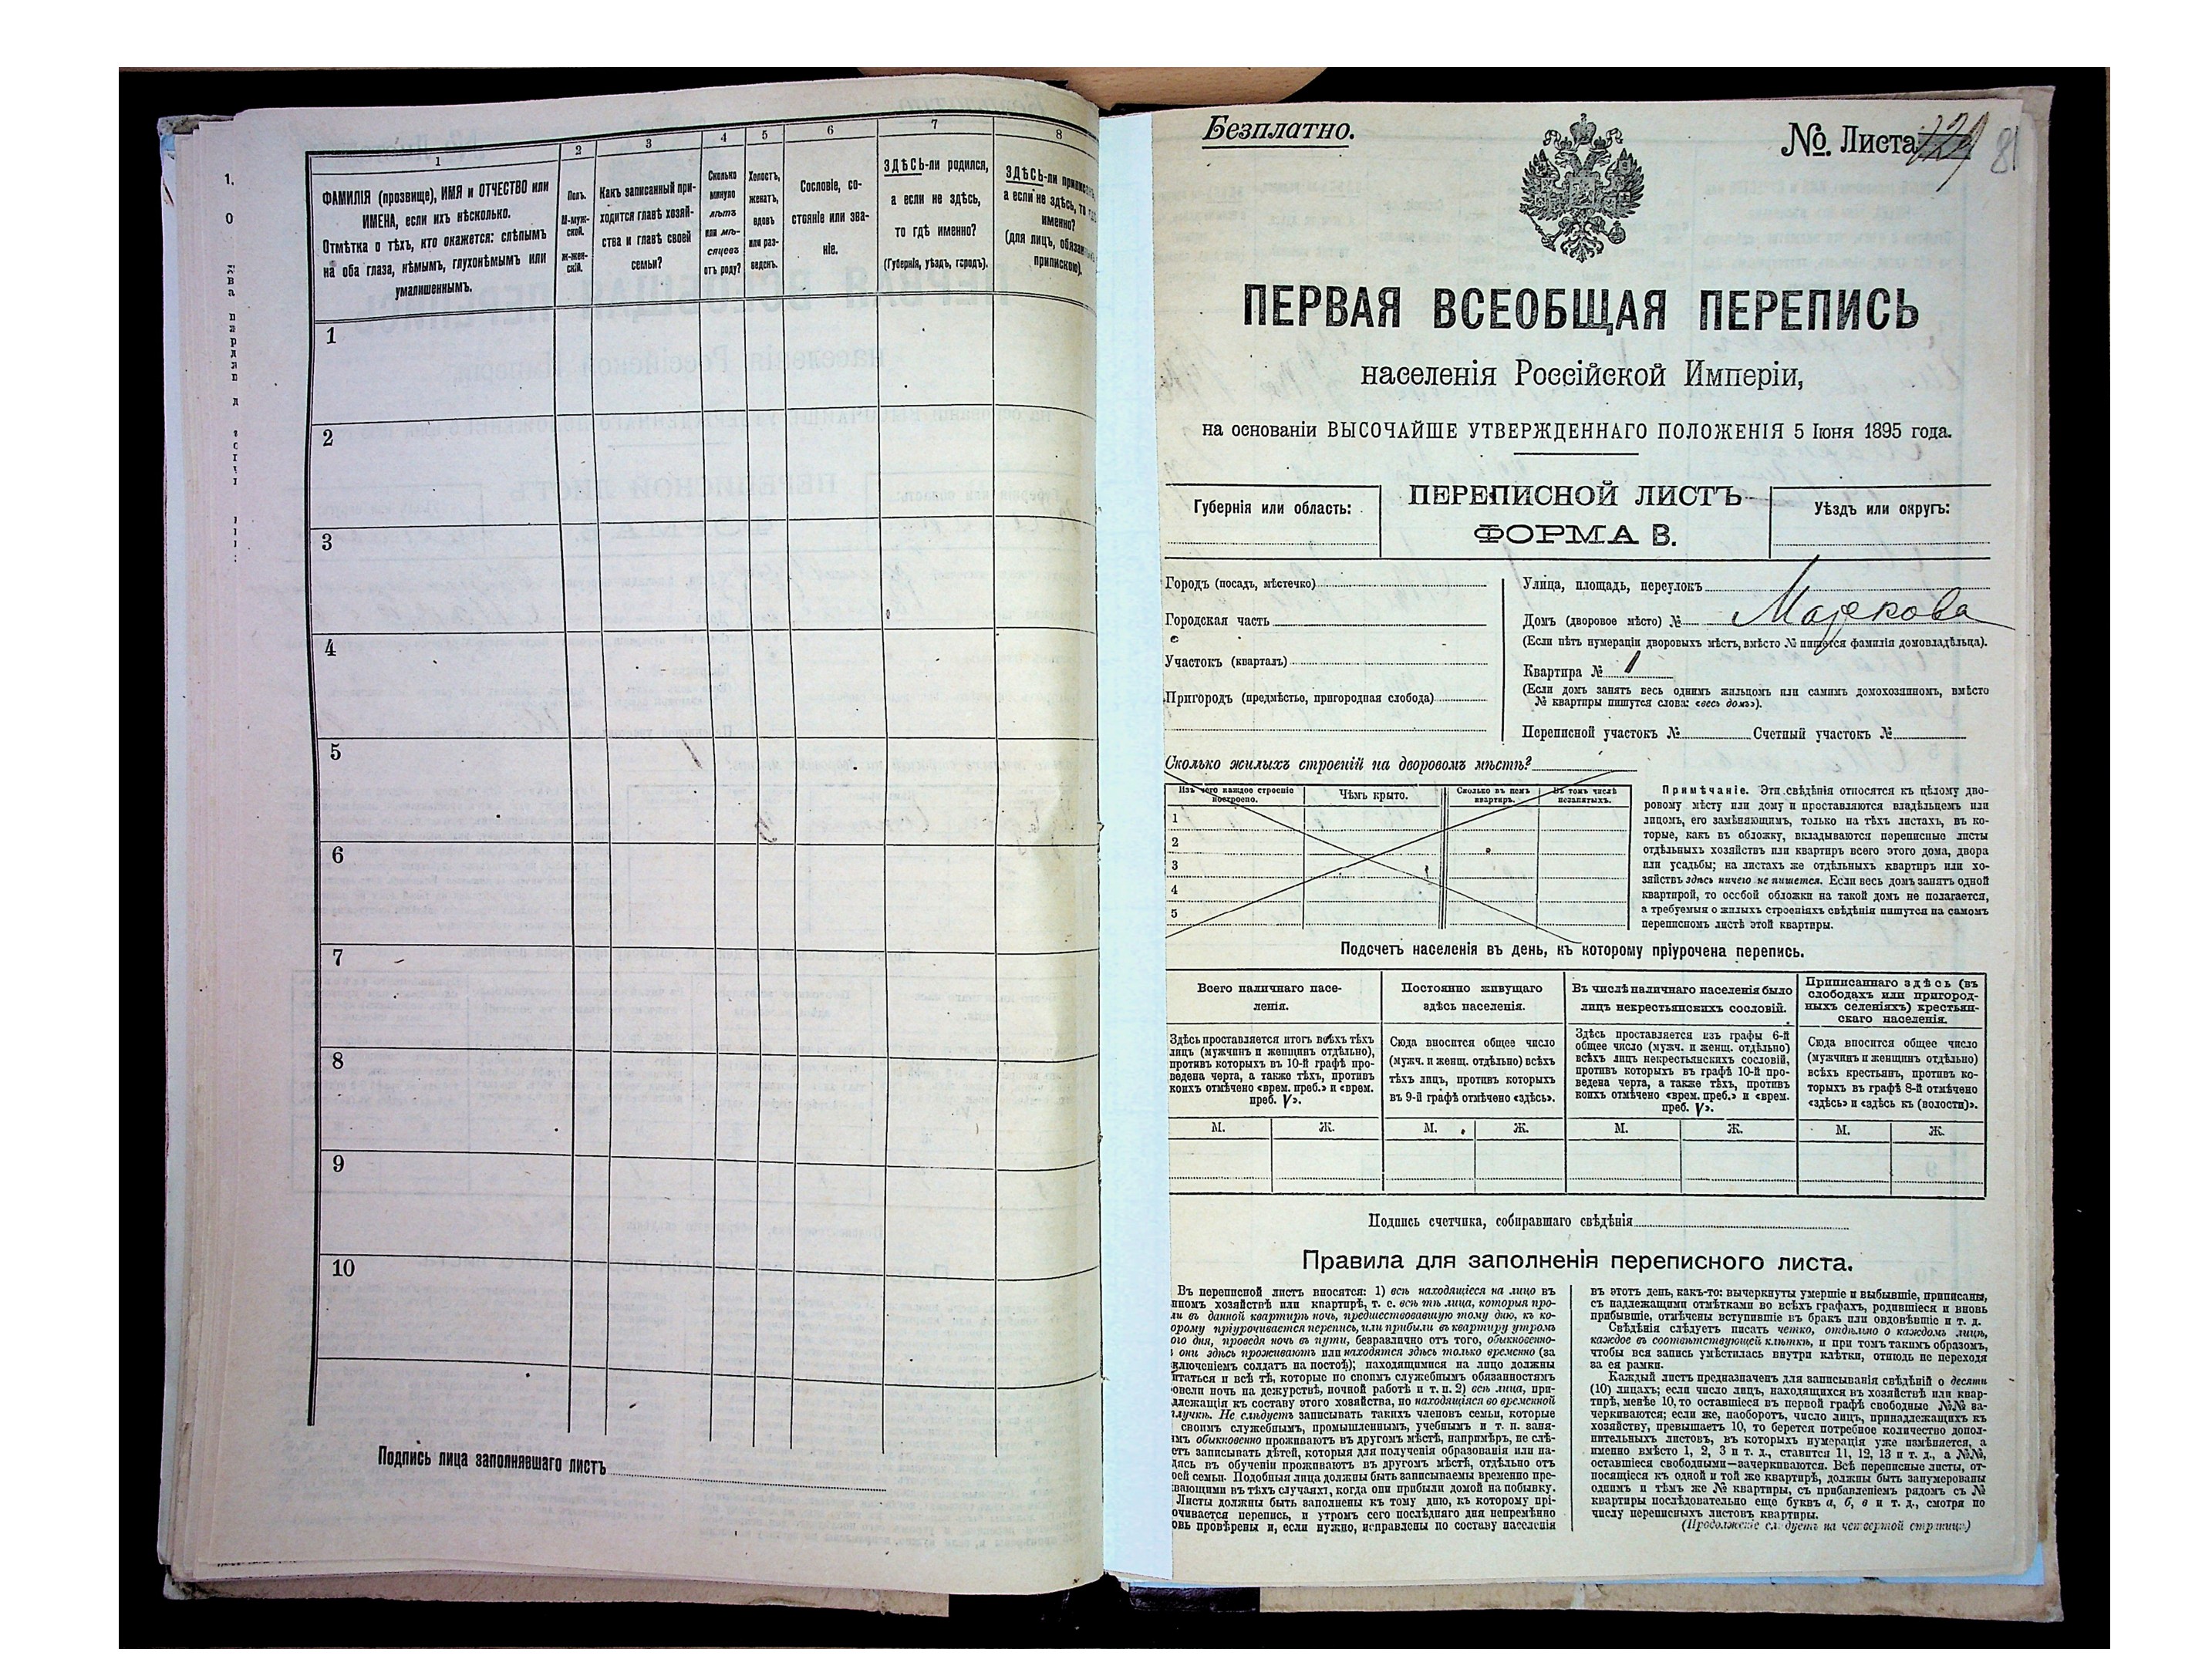 1
2
3
4
5
6
7
8
ФАМИЛІЯ (прозвище), ИМЯ и ОТЧЕСТВО или
ИМЕНА, если ихъ нѣсколько.
Отмѣтка о тѣхъ, кто окажется: слѣпымъ
на оба глаза, нѣмымъ, глухонѣмымъ или
умалишеннымъ.
Полъ.
М-муж-
ской.
Ж-жен-
скій.
Какъ записанный при-
ходится главѣ хозяй-
ства и главѣ своей
семьи?
Сколько
минуло
лѣтъ
или мѣ-
сяцевъ
отъ роду?
Холостъ,
женатъ,
вдовъ
или раз-
веденъ.
Сословіе, со-
стояніе или зва-
ніе.
ЗДѢСЬ-ли родился,
а если не здѣсь,
то гдѣ именно?
(Губернія, уѣздъ, городъ).
ЗДѢСЬ-ли
а если не здѣсь, то
именно?
(для лицъ,
припискою).
1
2
3
4
5
6
7
8
9
10
Подпись лица заполнявшаго листъ
Безплатно.
№. Листа 81
ПЕРВАЯ ВСЕОБЩАЯ ПЕРЕПИСЬ
населенія Россійской Имперіи,
на основаніи ВЫСОЧАЙШЕ УТВЕРЖДЕННАГО ПОЛОЖЕНІЯ 5 Іюня 1895 года.
Губернія или область:
ПЕРЕПИСНОЙ ЛИСТЪ
ФОРМА В.
Уѣздъ или округъ:
Городъ (посадъ, мѣстечко)
Городская часть
Участокъ (кварталъ)
Пригородъ (предмѣстье, пригородная слобода)
Улица, площадь, переулокъ
Домъ (дворовое мѣсто) №
(Если нѣтъ нумераціи дворовыхъ мѣстъ, вмѣсто № пишется фамилія домовладѣльца).
Квартира № 1
(Если домъ занятъ весь однимъ жильцомъ или самимъ домохозяиномъ, вмѣсто
№ квартиры пишутся слова: «весь домъ»).
Переписной участокъ № Счетный участокъ №
Сколько жилыхъ строеній на дворовомъ мѣстѣ?
Изъ чего каждое строеніе
построено.
Чѣмъ крыто.
Сколько въ немъ
квартиръ.
Въ томъ числѣ
незанятыхъ.
1
2
3
4
5
Примѣчаніе. Эти свѣдѣнія относятся къ цѣлому дво-
ровому мѣсту или дому и проставляются владѣльцемъ или
лицомъ, его замѣняющимъ, только на тѣхъ листахъ, въ ко-
торые, какъ въ обложку, вкладываются переписные листы
отдѣльныхъ хозяйствъ или квартиръ всего этого дома, двора
или усадьбы; на листахъ же отдѣльныхъ квартиръ или хо-
зяйствъ здѣсь ничего не пишется. Если весь домъ занятъ одной
квартирой, то особой обложки на такой домъ не полагается,
а требуемыя о жилыхъ строеніяхъ свѣдѣнія пишутся на самомъ
переписномъ листѣ этой квартиры.
Подсчетъ населенія въ день, къ которому пріурочена перепись.
Всего наличнаго насе-
ленія.
Постоянно живущаго
здѣсь населенія.
Въ числѣ наличнаго населенія было
лицъ некрестьянскихъ сословій.
Приписаннаго здѣсь (въ
слободахъ или пригород-
ныхъ селеніяхъ) крестьян-
скаго населенія.
Здѣсь проставляется итогъ всѣхъ тѣхъ
лицъ (мужчинъ и женщинъ отдѣльно),
противъ которыхъ въ 10-й графѣ про-
ведена черта, а также тѣхъ, противъ
коихъ отмѣчено «врем. преб.» и «врем.
преб. V».
Сюда вносится общее число
(мужч. и женщ. отдѣльно) всѣхъ
тѣхъ лицъ, противъ которыхъ
въ 9-й графѣ отмѣчено «здѣсь».
Здѣсь проставляется изъ графы 6-й
общее число (мужч. и женщ. отдѣльно)
всѣхъ лицъ некрестьянскихъ сословій,
противъ которыхъ въ графѣ 10-й про-
ведена черта, а также тѣхъ, противъ
коихъ отмѣчено «врем. преб.» и «врем.
преб. V».
Сюда вносится общее число
(мужчинъ и женщинъ отдѣльно)
всѣхъ крестьянъ, противъ ко-
торыхъ въ графѣ 8-й отмѣчено
«здѣсь» и «здѣсь къ (волости)».
М. Ж. М. Ж. М. Ж. М. Ж.
Подпись счетчика, собиравшаго свѣдѣнія
Правила для заполненія переписного листа.
Въ переписной листъ вносятся: 1) всѣ находящіеся на лицо въ
хозяйствѣ или квартирѣ, т. е. всѣ тѣ лица, которыя про-
въ данной квартирѣ ночь, предшествовавшую тому дню, къ ко-
пріурочивается перепись, или прибыли въ квартиру утромъ
дня, проведя ночь въ пути, безразлично отъ того, обыкновенно-
они здѣсь проживаютъ или находятся здѣсь только временно (за
солдатъ на постоѣ); находящимися на лицо должны
и всѣ тѣ, которые по своимъ служебнымъ обязанностямъ
ночь на дежурствѣ, ночной работѣ и т. п. 2) всѣ лица, при-
къ составу этого хозяйства, но находящіяся во временной
Не слѣдуетъ записывать такихъ членовъ семьи, которые
своимъ служебнымъ, промышленнымъ, учебнымъ и т. п. заня-
обыкновенно проживаютъ въ другомъ мѣстѣ, напримѣръ, не слѣ-
записывать дѣтей, которыя для полученія образованія или на-
въ обученіи проживаютъ въ другомъ мѣстѣ, отдѣльно отъ
семьи. Подобныя лица должны быть записываемы временно пре-
въ тѣхъ случаяхъ, когда они прибыли домой на побывку.
Листы должны быть заполнены къ тому дню, къ которому прі-
перепись, и утромъ сего послѣдняго дня непремѣнно
провѣрены и, если нужно, исправлены по составу населенія
въ этотъ день, какъ-то: вычеркнуты умершіе и выбывшіе, приписаны,
съ надлежащими отмѣтками во всѣхъ графахъ, родившіеся и вновь
прибывшіе, отмѣчены вступившіе въ бракъ или овдовѣвшіе и т. д.
Свѣдѣнія слѣдуетъ писать четко, отдѣльно о каждомъ лицѣ,
каждое въ соотвѣтствующей клѣткѣ, и при томъ такимъ образомъ,
чтобы вся запись умѣстилась внутри клѣтки, отнюдь не переходя
за ея рамки.
Каждый листъ предназначенъ для записыванія свѣдѣній о десяти
(10) лицахъ; если число лицъ, находящихся въ хозяйствѣ или квар-
тирѣ, менѣе 10, то оставшіеся въ первой графѣ свободные №№ за-
черкиваются; если же, наоборотъ, число лицъ, принадлежащихъ къ
хозяйству, превышаетъ 10, то берется потребное количество допол-
нительныхъ листовъ, въ которыхъ нумерація уже измѣняется, а
именно вмѣсто 1, 2, 3 и т. д., ставится 11, 12, 13 и т. д., а №№,
оставшіеся свободными—зачеркиваются. Всѣ переписные листы, от-
носящіеся къ одной и той же квартирѣ, должны быть занумерованы
однимъ и тѣмъ же № квартиры, съ прибавленіемъ рядомъ съ №
квартиры послѣдовательно еще буквъ а, б, в и т. д., смотря по
числу переписныхъ листовъ квартиры.
(Продолженіе слѣдуетъ на четвертой страницѣ)